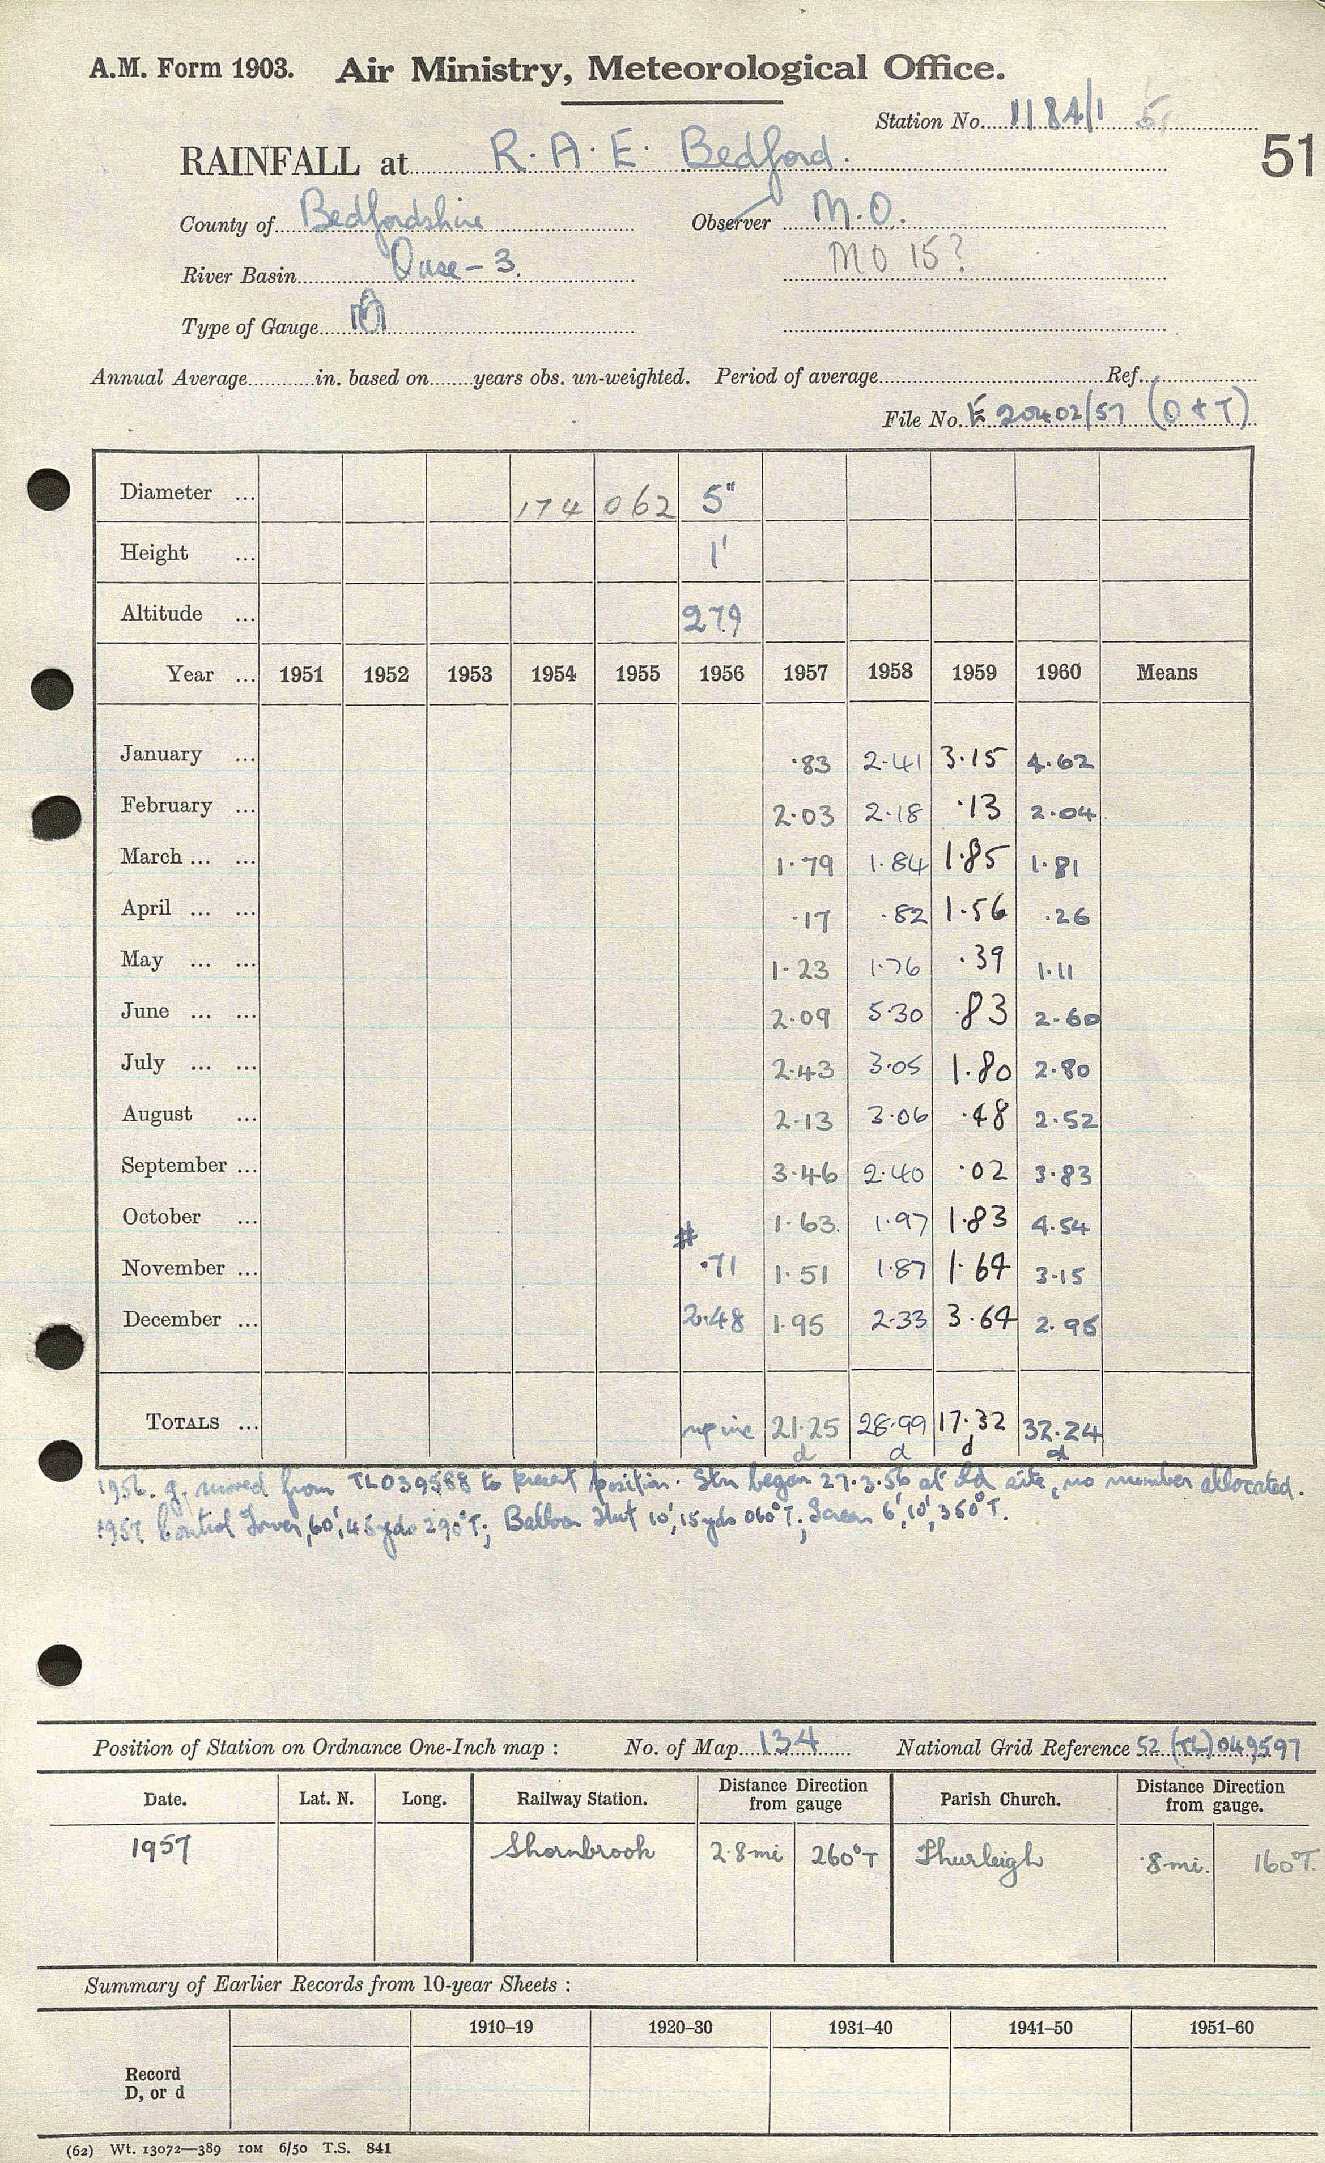 A.M. Form 1903. Air Ministry, Meteorological Office.
Station No. 1184/1
51
RAINFALL at R.A.E. Bedford.
County of Bedfordshire Observer M.O.
River Basin Ouse - 3. MO 15?
Type of Gauge
Annual Average in. based on years obs. un-weighted. Period of average Ref.
File No. E 20402/57 (O+T)
Diameter ... 174 062 5"
Height ... 1'
Altitude ... 279
Year ... 1951 1952 1953 1954 1955 1956 1957 1958 1959 1960 Means
January ... ·83 2·41 3·15 4·62
February ... 2·03 2·18 ·13 2·04
March ... ... 1·79 1·84 1·85 1·81
April ... ... ·17 ·82 1·56 ·26
May ... ... 1·23 1·76 ·39 1·11
June ... ... 2·09 5·30 ·83 2·60
July ... ... 2·43 3·05 1·80 2·80
August ... 2·13 3·06 ·48 2·52
September ... 3·46 2·40 ·02 3·83
October ... 1·63 1·97 1·83 4·54
#
November ... ·71 1·51 1·87 1·64 3·15
December ... 2·48 1·95 2·33 3·64 2·96
TOTALS ... 21·25 28·99 17·32 32·24
d d d d
1956. g. moved from TL039588 to present position. Stn began 27.3.56 at old site, no number allocated.
1957 Control Tower, 60', 45yds 290°T; Balloon Hut 10', 15yds 060°T; Screen 6', 10', 350°T.
Position of Station on Ordnance One-Inch map : No. of Map 134 National Grid Reference 52 (TL) 049597
Date. Lat. N. Long. Railway Station. Distance Direction from gauge Parish Church. Distance Direction from gauge.
1957 Sharnbrook 2·8mi 260°T Thurleigh ·8mi. 160°T.
Summary of Earlier Records from 10-year Sheets :
1910–19 1920–30 1931–40 1941–50 1951–60
Record
D, or d
(62) Wt. 13072—389 10M 6/50 T.S. 841